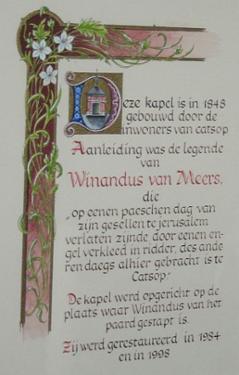 Deze kapel is in 1848
gebouwd door de
inwoners van catsop
Aanleiding was de legende
van
Winandus van Meers,
die
„op eenen paeschen dag van
zijn gesellen te jerusalem
verlaten zijnde door eenen en-
gel verkleed in ridder, des ande
ren daegs alhier gebracht is te
Catsop."
De kapel werd opgericht op de
plaats waar Winandus van het
paard gestapt is.
Zij werd gerestaureerd in 1984
en in 1998